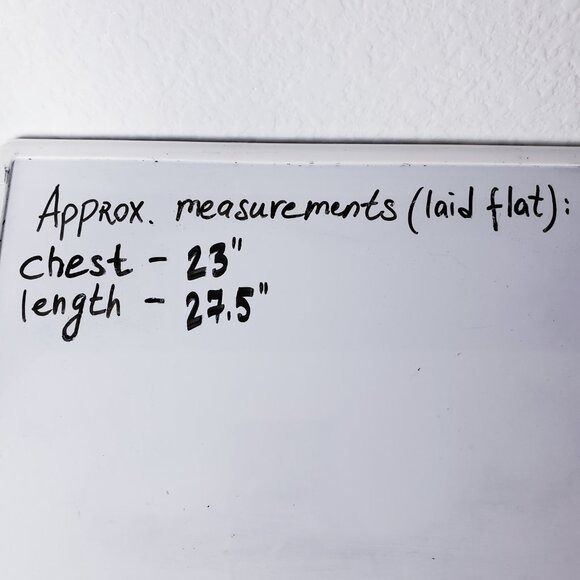 Approx. measurements (laid flat):
chest - 23"
length - 27.5"